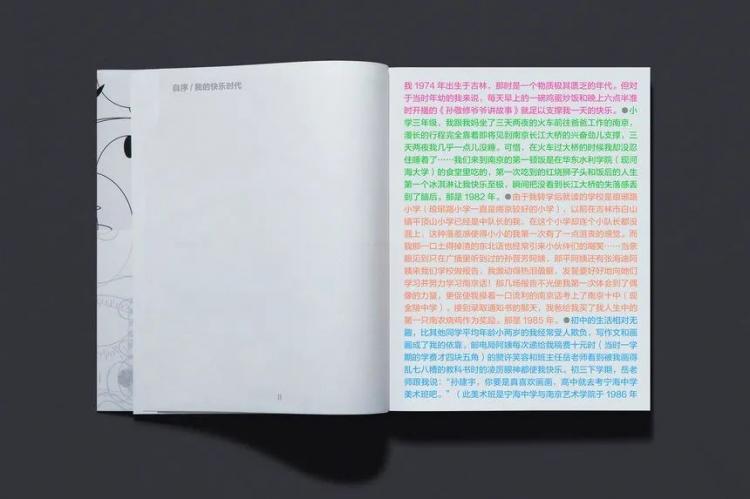 自序 / 我的快乐时代
II
我 1974 年出生于吉林，那时是一个物质极其匮乏的年代。但对
于当时年幼的我来说，每天早上的一碗鸡蛋炒饭和晚上六点半准
时开播的《孙敬修爷爷讲故事》就足以支撑我一天的快乐。●小
学三年级，我跟我妈坐了三天两夜的火车前往爸爸工作的南京，
漫长的行程完全靠着即将见到南京长江大桥的兴奋劲儿支撑，三
天两夜我几乎一点儿没睡。可惜，在火车过大桥的时候我却没忍
住睡着了……我们来到南京的第一顿饭是在华东水利学院（现河
海大学）的食堂里吃的，第一次吃到的红烧狮子头和饭后的人生
第一个冰淇淋让我快乐至极，瞬间把没看到长江大桥的失落感丢
到了脑后。那是 1982 年。●由于我转学后就读的学校是琅琊路
小学（琅琊路小学一直是南京较好的小学），以前在吉林市白山
镇平顶山小学已经是中队长的我，在这个小学却连个小队长都没
混上，这种落差感使得小小的我第一次有了一点沮丧的感觉。而
我那一口土得掉渣的东北话也经常引来小伙伴们的嘲笑……当亲
眼见到只在广播里听到过的孙晋芳阿姨、郎平阿姨还有张海迪阿
姨来我们学校做报告，我激动得热泪盈眶，发誓要好好地向她们
学习并努力学习南京话！那几场报告不光使我第一次体会到了偶
像的力量，更促使我操着一口流利的南京话考上了南京十中（现
金陵中学）。接到录取通知书的那天，我爸给我买了我人生中的
第一只南农烧鸡作为奖励。那是 1985 年。●初中的生活相对无
趣，比其他同学平均年龄小两岁的我经常受人欺负，写作文和画
画成了我的依靠。邮电局阿姨每次递给我稿费十元时（当时一学
期的学费才四块五角）的赞许笑容和班主任岳老师看到被我画得
乱七八糟的教科书时的凌厉眼神都使我快乐。初三下学期，岳老
师跟我说：“孙建宇，你要是真喜欢画画，高中就去考宁海中学
美术班吧。”（此美术班是宁海中学与南京艺术学院于 1986 年